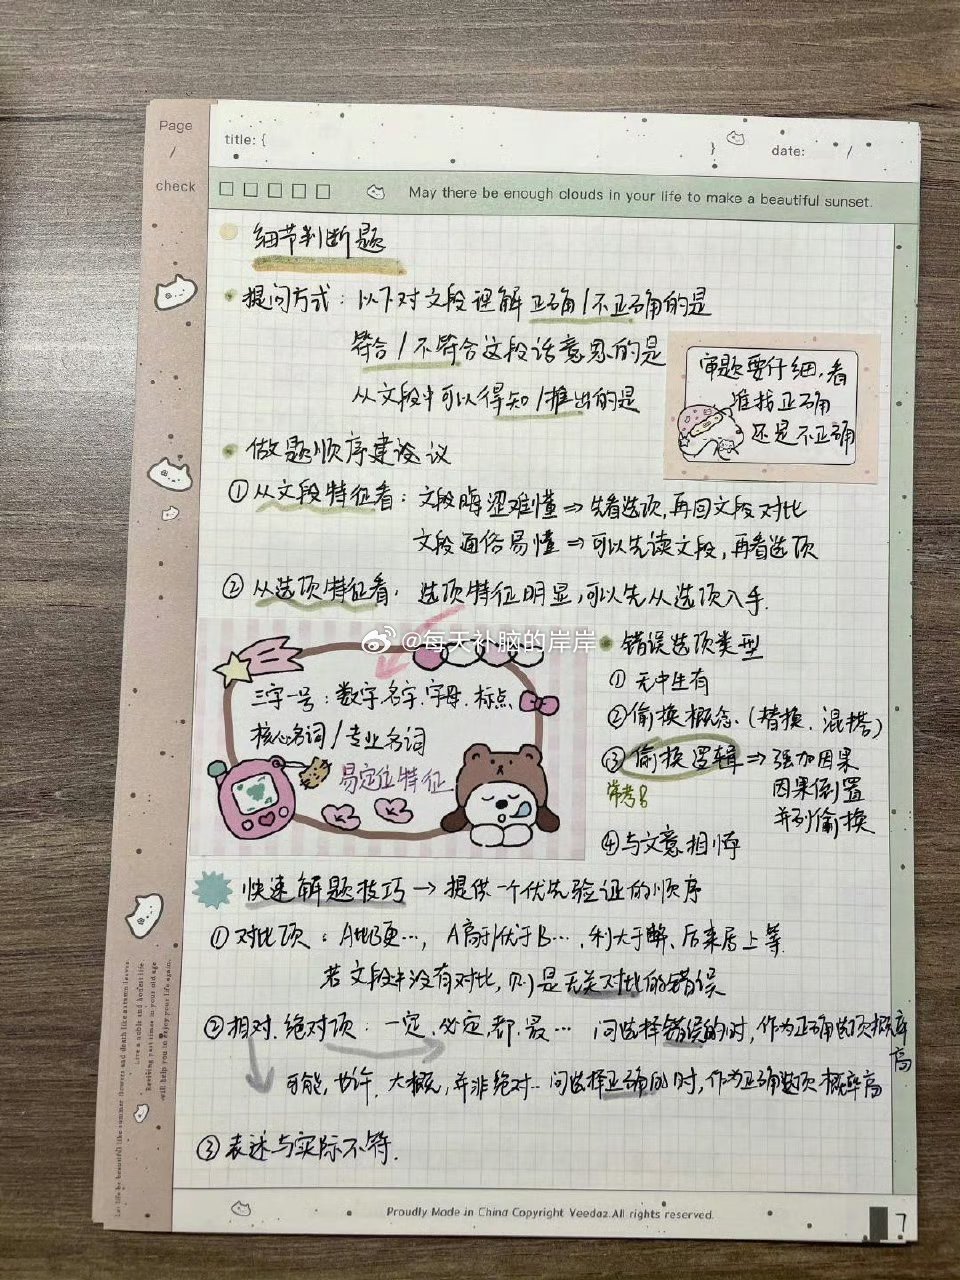 Page
/
check
title: {
}
date: /
May there be enough clouds in your life to make a beautiful sunset.
细节判断题
提问方式：以下对文段理解正确/不正确的是
符合/不符合这段话意思的是
从文段中可以得知/推出的是
审题要仔细,看
准找正确
还是不正确
做题顺序建议
①从文段特征看：文段晦涩难懂⇒先看选项,再回文段对比
文段通俗易懂⇒可以先读文段,再看选项
②从选项特征看,选项特征明显,可以先从选项入手.
@每天补脑的岸岸
三字一号：数字.名字.字母.标点
核心名词/专业名词
易定位特征
错误选项类型
①无中生有
②偷换概念.(替换.混搭)
③偷换逻辑⇒强加因果
常考
因果倒置
并列偷换
④与文意相悖
快速解题技巧→提供一个优先验证的顺序
①对比项：A比B更…,A高于/优于B…,利大于弊.后来居上等.
若文段中没有对比,则是无关对比的错误
②相对.绝对项：一定.必定.都.最…问选择错误的时,作为正确选项概率高
可能,也许.大概,并非绝对…问选择正确的时,作为正确选项概率高
③表述与实际不符.
Let life be beautiful like summer flowers and death like autumn leaves.
Live a noble and honest life
Reviving past times in your old age
will help you to enjoy your life again.
Proudly Made in China Copyright Yeedaz.All rights reserved.
7